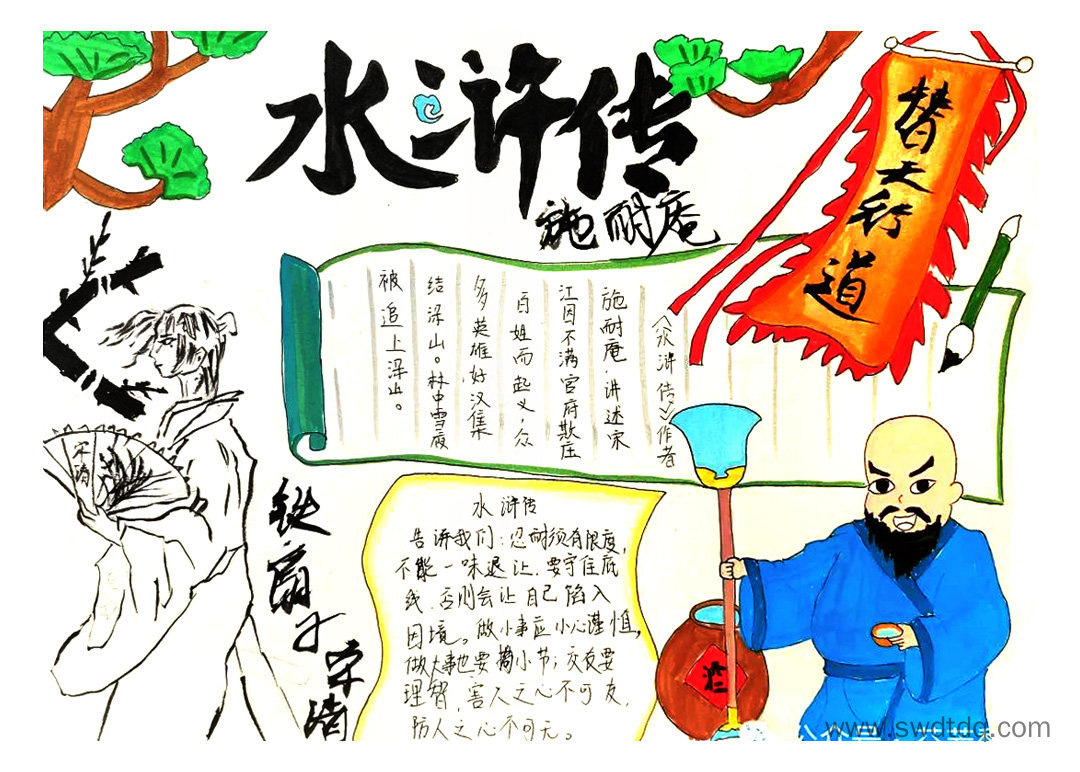 水浒传
施耐庵
替天行道
《水浒传》作者
施耐庵.讲述宋
江因不满官府欺庄
百姐而起义,众
多英雄好汉集
结梁山。林中雪夜
被追上梁山。
宋清
铁扇子宋清
水浒传
告诉我们:忍耐须有限度,
不能一味退让.要守住底
线.否则会让自己陷入
困境。做小事应小心谨慎,
做大事也要拘小节;交友要
理智,害人之心不可友,
防人之心不可无。
酒
www.swdtdg.com